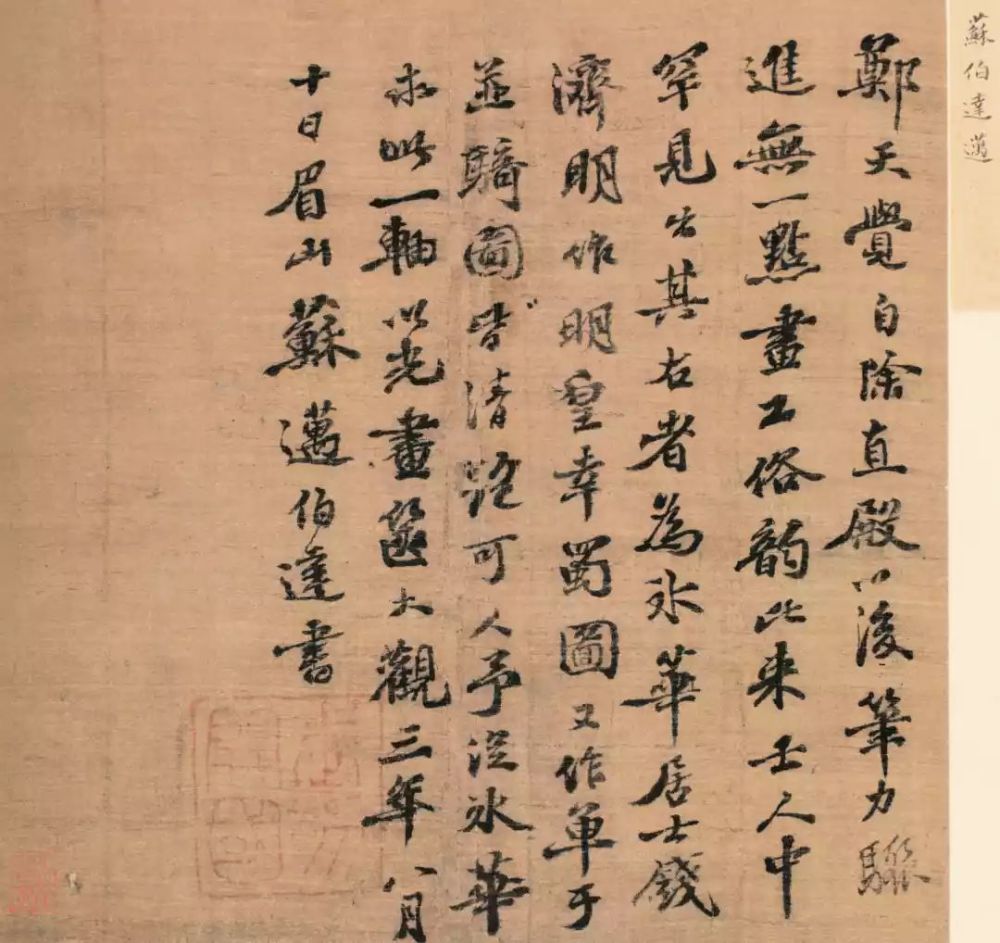 蘇伯達邁
鄭天覺自除直殿以後筆力驟
進無一點畫工俗韵比来士人中
罕見出其右者為氷華居士錢
濟明作明皇幸蜀圖又作單于
並騎圖皆清絶可人予從氷華
求此一軸以光畫篋大觀三年八月
十日眉山蘇邁伯達書